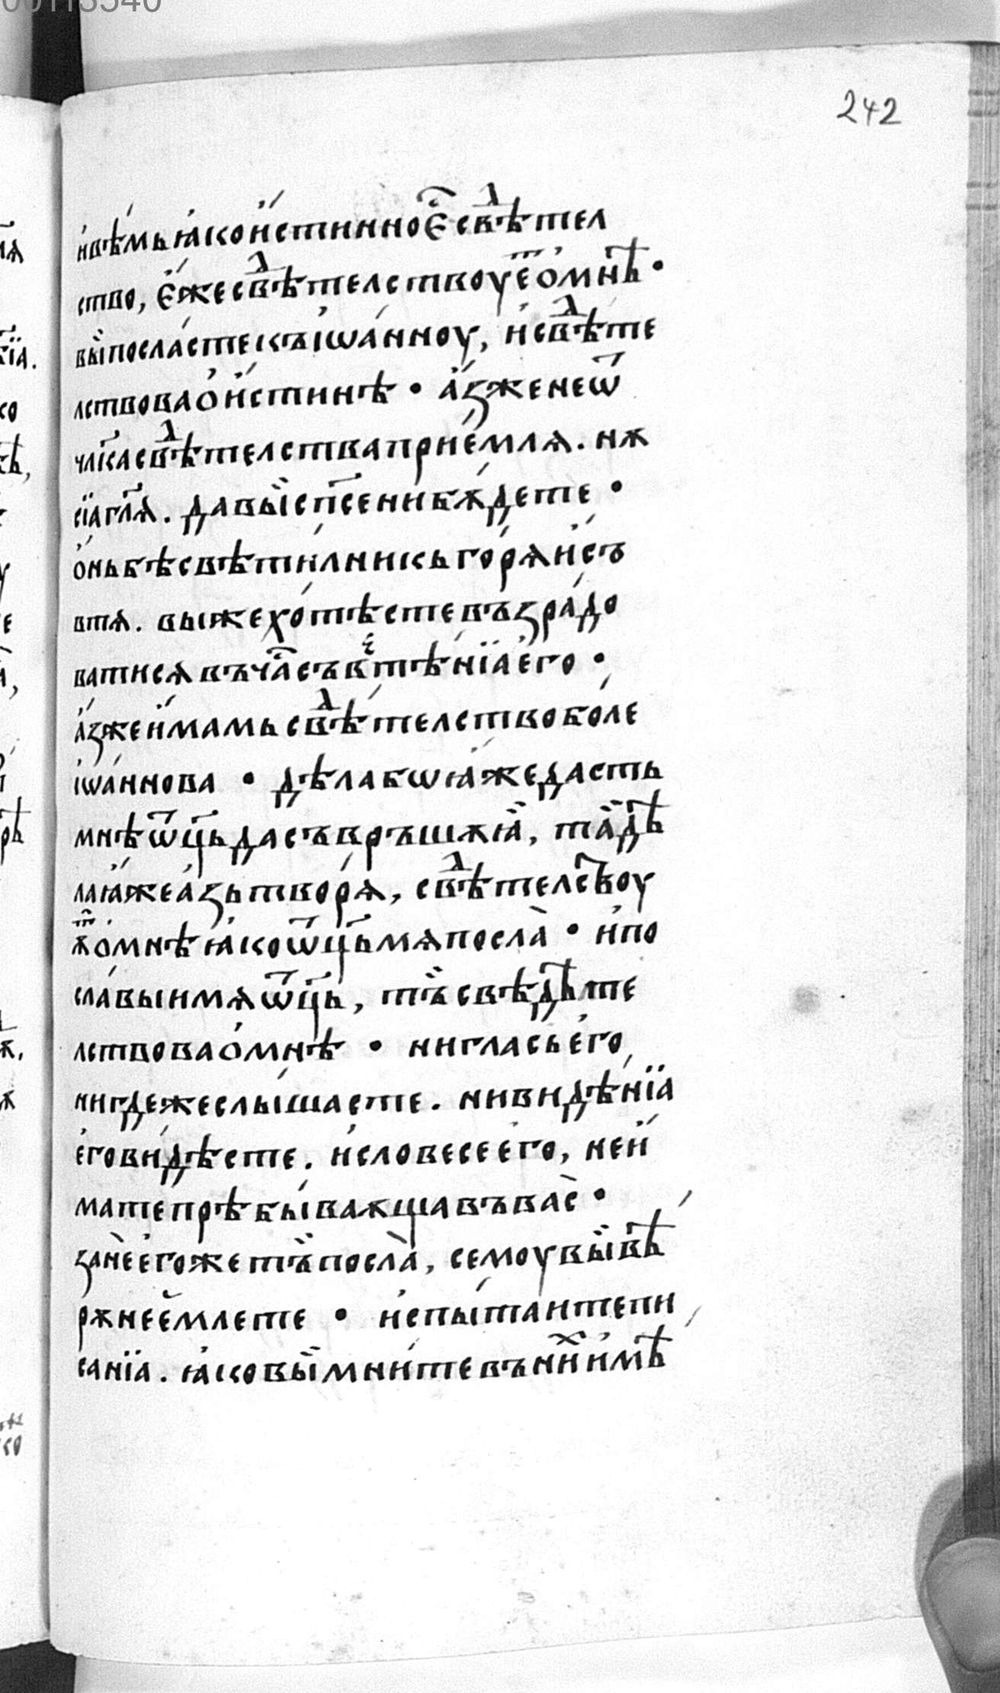 00113540
242
и҆вѣмь ꙗ҆ко и҆стинно є҆҃ свⷣѣтел
ство, є҆же свⷣѣтелствоуеⷮ ѡ҆ мнѣ •
вы̀ посласте къ і҆ѡа́нноу, и҆ свⷣѣте
лствова ѻ҆ и҆стинѣ • а҆́з же не ѿ
чл҃ка свⷣѣтелства прие́млѧ. нѫ
сїа гл҃ѧ. да вы̀ сп҃сени бѫ́дете •
ѻ҆́нь бѣ свѣти́лникь горѧ̀ и҆ съ
втѧ. вы же хо́тѣсте възра́до
ватисѧ въ ча̑съ свⷣтѣнїа е҆го •
а҆́з же и҆мамь свⷣѣтелство бо́ле
і҆ѡа́ннова • дѣла бѡ ꙗ҆́же дасть
мнѣ ѿц҃ь да съвръшѫ ꙗ҆̀, та̀ дѣ
ла ꙗ҆́же а҆́зь творѧ̀, свⷣѣтелс҃твоу
ѫⷮ ѡ҆ мнѣ ꙗ҆ко ѿц҃ь мѧ посла̀ • и҆ по
сла́выи мѧ ѿц҃ь, тъ̀ свѣдѣте
лствова ѻ҆ мнѣ • ни гласа е҆го
нигдеже слы́шасте. ни видѣнїа
е҆го ви́дѣсте. и҆ словесе е҆го, не и҆
мате прѣбы́ваѫща въ ва̀с •
занѐ е҆гоже тъ̀ посла̀, семоу вы̀ вѣ
рѫ не е҆́млете • и҆спы́таите пи
санїа. ꙗ҆ко вы̀ мни́те въ ниⷯ и҆мѣ